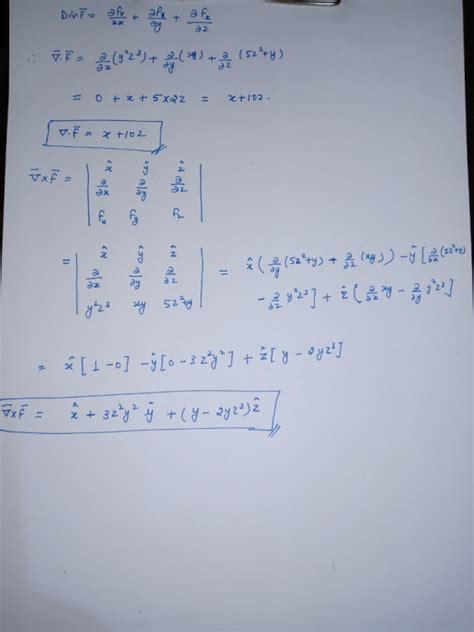 Div F̄ = ∂Fx/∂x + ∂Fy/∂y + ∂Fz/∂z
∴ ∇̄.F̄ = ∂/∂x (y²z³) + ∂/∂y (xy) + ∂/∂z (5z²+y)
= 0 + x + 5×2z = x+10z.
∇.F̄ = x+10z
∇̄×F̄ = | x̂ ŷ ẑ |
| ∂/∂x ∂/∂y ∂/∂z |
| Fx Fy Fz |
= | x̂ ŷ ẑ |
| ∂/∂x ∂/∂y ∂/∂z |
| y²z³ xy 5z²+y |
= x̂ ( ∂/∂y (5z²+y) + ∂/∂z (xy) ) - ŷ [ ∂/∂x (5z²+y)
- ∂/∂z y²z³ ] + ẑ [ ∂/∂x xy - ∂/∂y y²z³ ]
= x̂ [ 1-0 ] - ŷ [ 0 - 3z²y² ] + ẑ [ y - 2yz³ ]
∇̄×F̄ = x̂ + 3z²y² ŷ + (y - 2yz³) ẑ